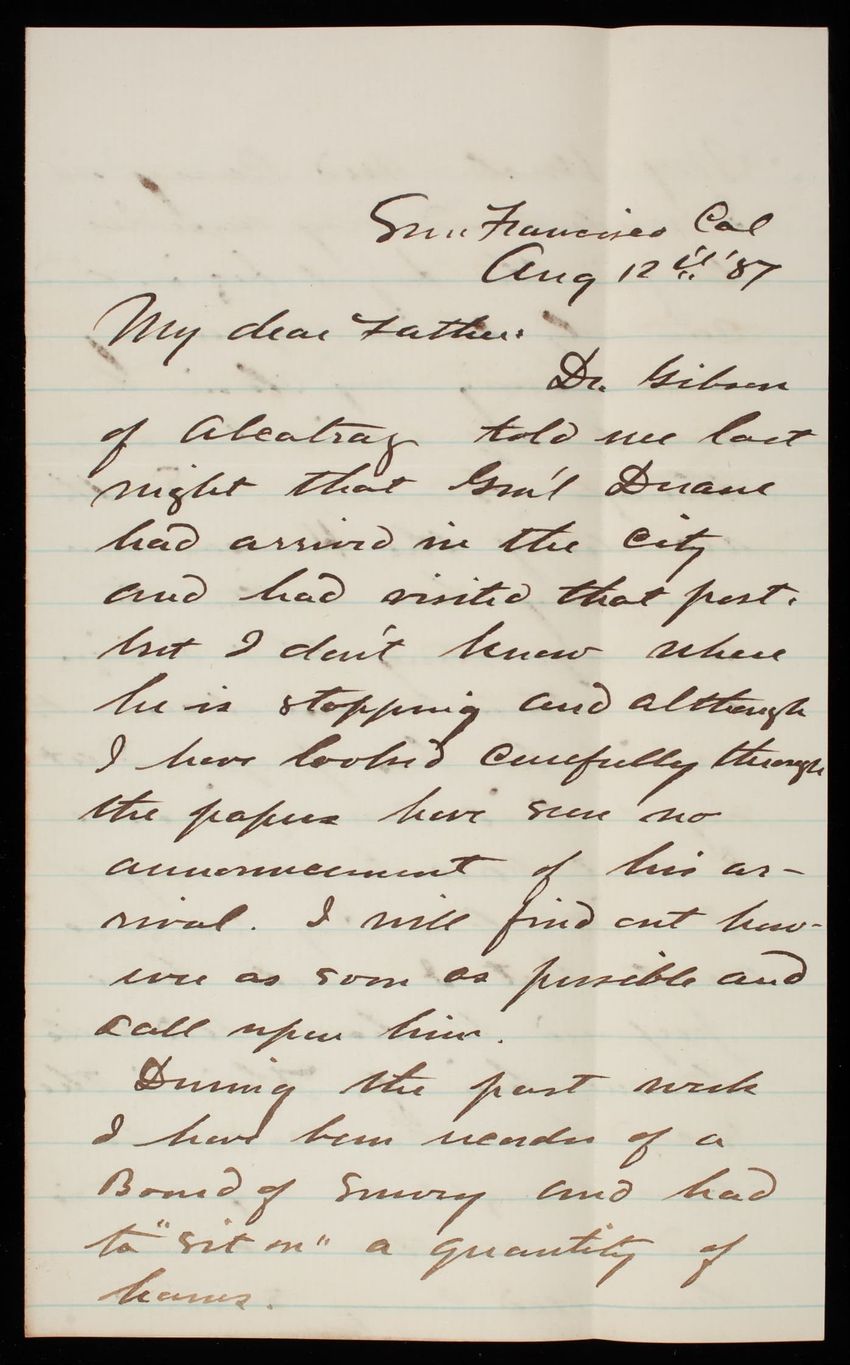 San Francisco Cal
Aug 12th '87
My dear Father:
Dr. Gibson
of Alcatraz told me last
night that Gen'l Duane
had arrived in the City
and had visited that post.
but I don't know where
he is stopping and although
I have looked carefully through
the papers have seen no
announcement of his ar-
rival. I will find out how-
ever as soon as possible and
call upon him.
During the past week
I have been recorder of a
Board of Survey and had
to "sit on" a quantity of
hams.